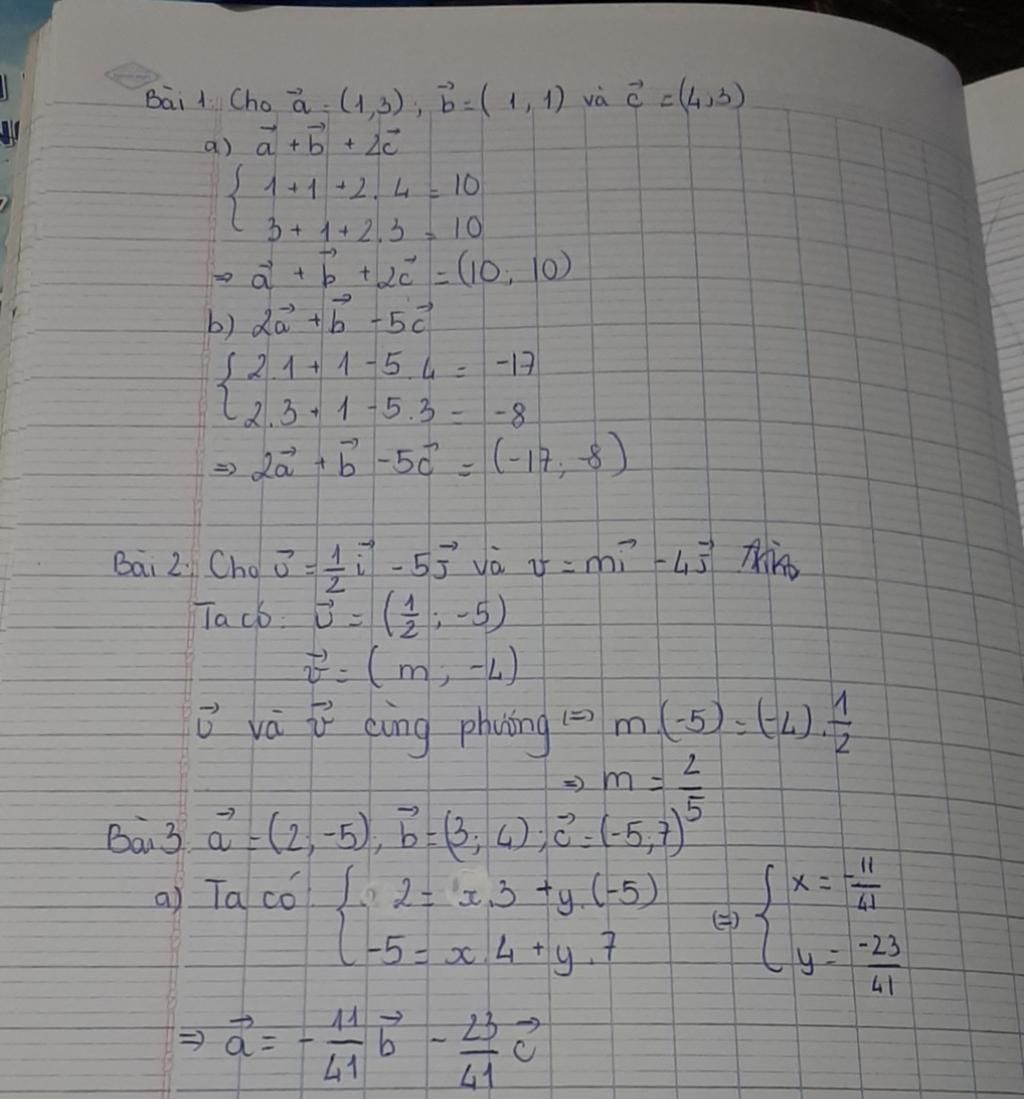 Bài 1: Cho a⃗ = (1,3); b⃗ = (1,1) và c⃗ = (4,3)
a) a⃗ + b⃗ + 2c⃗
{ 1 + 1 + 2.4 = 10
3 + 1 + 2.3 = 10
⇒ a⃗ + b⃗ + 2c⃗ = (10; 10)
b) 2a⃗ + b⃗ - 5c⃗
{ 2.1 + 1 - 5.4 = -17
2.3 + 1 - 5.3 = -8
⇒ 2a⃗ + b⃗ - 5c⃗ = (-17; -8)
Bài 2: Cho u⃗ = 1/2 i⃗ - 5j⃗ và v = mi⃗ - 4j⃗
Ta có: u⃗ = (1/2; -5)
v⃗ = (m; -4)
u⃗ và v⃗ cùng phương ⇔ m.(-5) = (-4).1/2
⇒ m = 2/5
Bài 3: a⃗ = (2; -5), b⃗ = (3; 4); c⃗ = (-5; 7)
a) Ta có { 2 = x.3 + y.(-5) ⇔ { x = -11/41
-5 = x.4 + y.7 y = -23/41
⇒ a⃗ = - 11/41 b⃗ - 23/41 c⃗